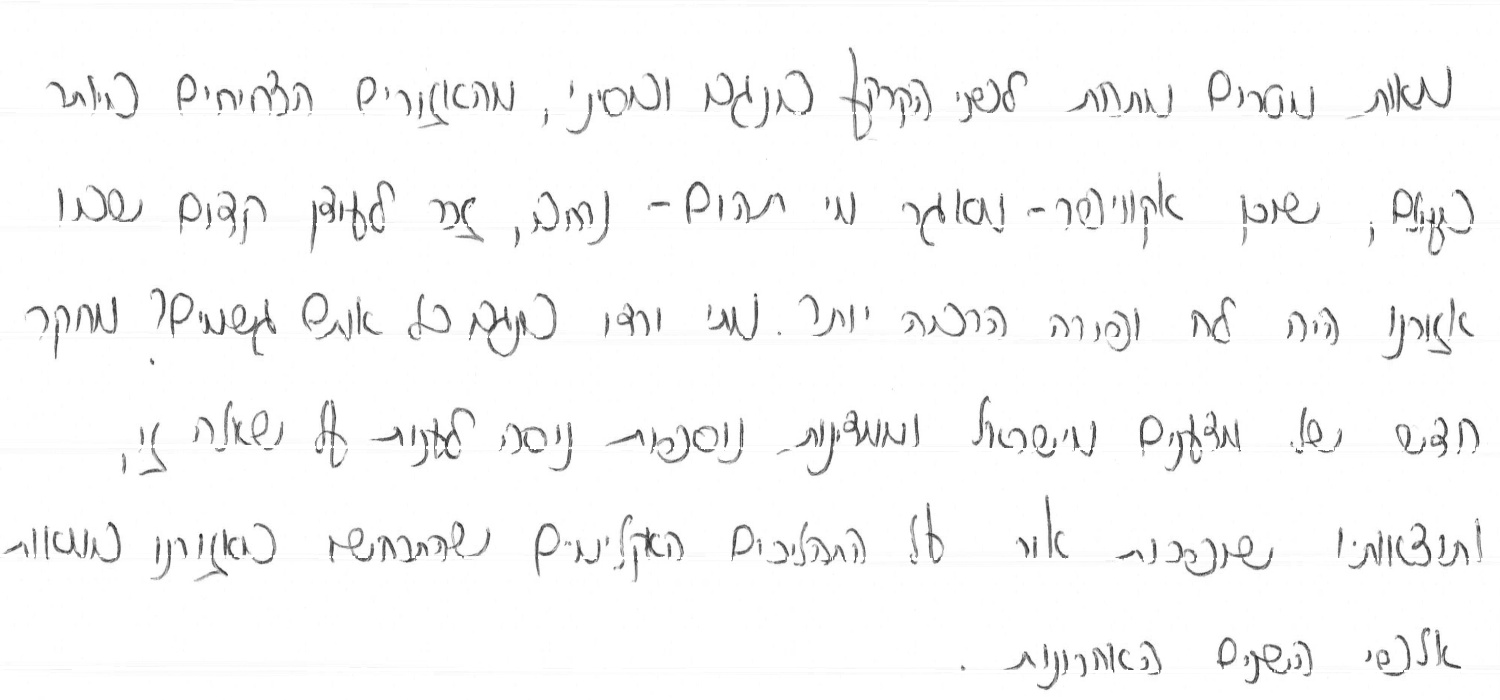 מאות מטרים מתחת לפני הקרקע בנגב ובסיני, מהאזורים הצחיחים ביותר
בעולם, שוכן אקוויפר - מאגר מי תהום - נרחב, זכר לעידן קדום שבו
אזורנו היה לח ופורה הרבה יותר. מתי ירדו בנגב כל אותם גשמים? מחקר
חדש של מדענים מישראל וממדינות נוספות ניסה לענות על שאלה זו,
ותוצאותיו שופכות אור על התהליכים האקלימיים שהתרחשו באזורנו במאות
אלפי השנים האחרונות.